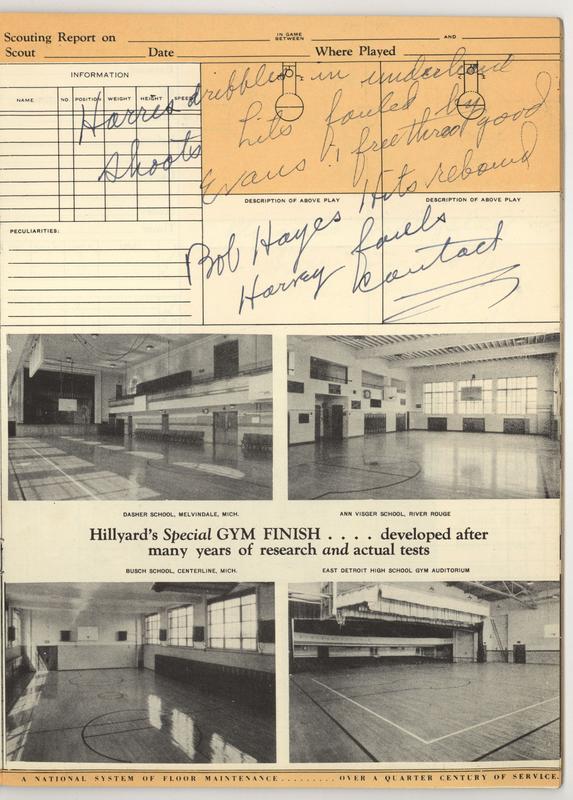 Scouting Report on IN GAME BETWEEN AND
Scout Date Where Played
INFORMATION
NAME NO. POSITION WEIGHT HEIGHT SPEED
Harris dribbles in underhand
shoots hits fouled by
Evans 1 freethrow good
Hits rebound
DESCRIPTION OF ABOVE PLAY DESCRIPTION OF ABOVE PLAY
PECULIARITIES:
Bob Hayes fouls
Harvey contact
DASHER SCHOOL, MELVINDALE, MICH. ANN VISGER SCHOOL, RIVER ROUGE
Hillyard's Special GYM FINISH . . . . developed after
many years of research and actual tests
BUSCH SCHOOL, CENTERLINE, MICH. EAST DETROIT HIGH SCHOOL GYM AUDITORIUM
A NATIONAL SYSTEM OF FLOOR MAINTENANCE......... OVER A QUARTER CENTURY OF SERVICE.